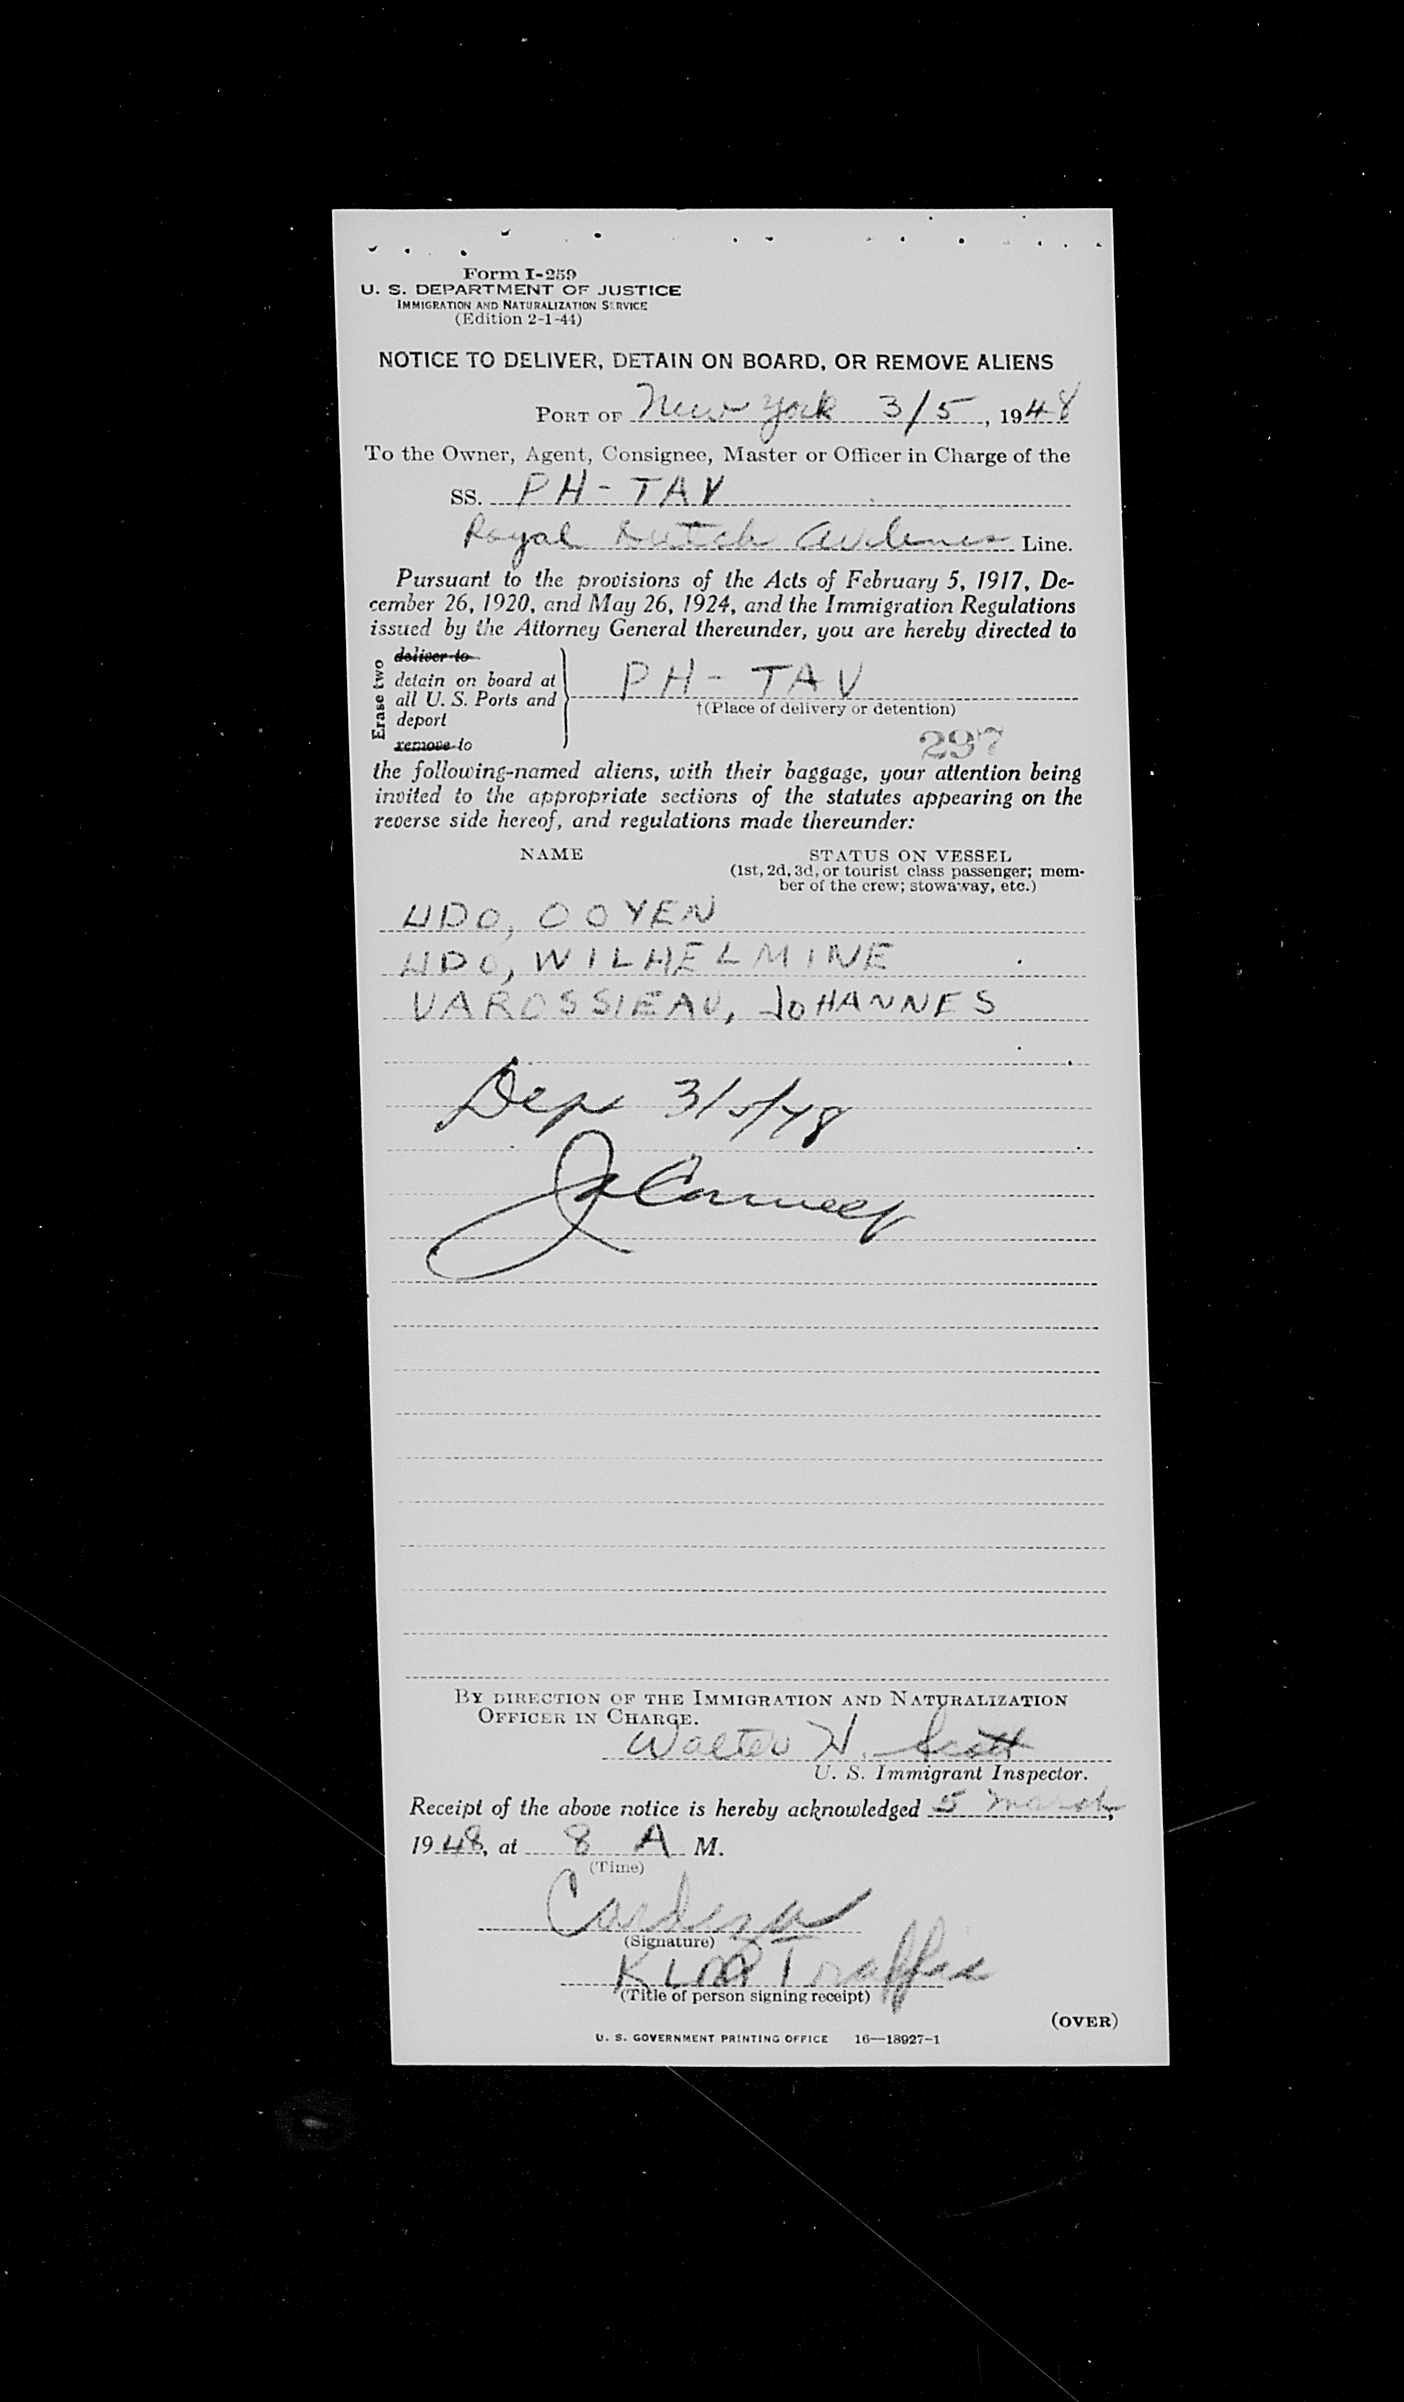 Form I-259
U. S. DEPARTMENT OF JUSTICE
IMMIGRATION AND NATURALIZATION SERVICE
(Edition 2-1-44)
NOTICE TO DELIVER, DETAIN ON BOARD, OR REMOVE ALIENS
PORT OF New York 3/5, 1948
To the Owner, Agent, Consignee, Master or Officer in Charge of the
SS. PH-TAV
Royal Dutch Airlines Line.
Pursuant to the provisions of the Acts of February 5, 1917, De-
cember 26, 1920, and May 26, 1924, and the Immigration Regulations
issued by the Attorney General thereunder, you are hereby directed to
Erase two
deliver to
detain on board at
all U. S. Ports and
deport
remove to
PH-TAV
†(Place of delivery or detention)
297
the following-named aliens, with their baggage, your attention being
invited to the appropriate sections of the statutes appearing on the
reverse side hereof, and regulations made thereunder:
NAME STATUS ON VESSEL
(1st, 2d, 3d, or tourist class passenger; mem-
ber of the crew; stowaway, etc.)
UDO, OOYEN
UDO, WILHELMINE
VAROSSIEAU, JOHANNES
Dep 3/5/48
BY DIRECTION OF THE IMMIGRATION AND NATURALIZATION
OFFICER IN CHARGE.
Walter H. Scott
U. S. Immigrant Inspector.
Receipt of the above notice is hereby acknowledged 5 March,
1948, at 8 A M.
(Time)
(Signature)
KLM Traffic
(Title of person signing receipt)
(OVER)
U. S. GOVERNMENT PRINTING OFFICE 16—18927-1